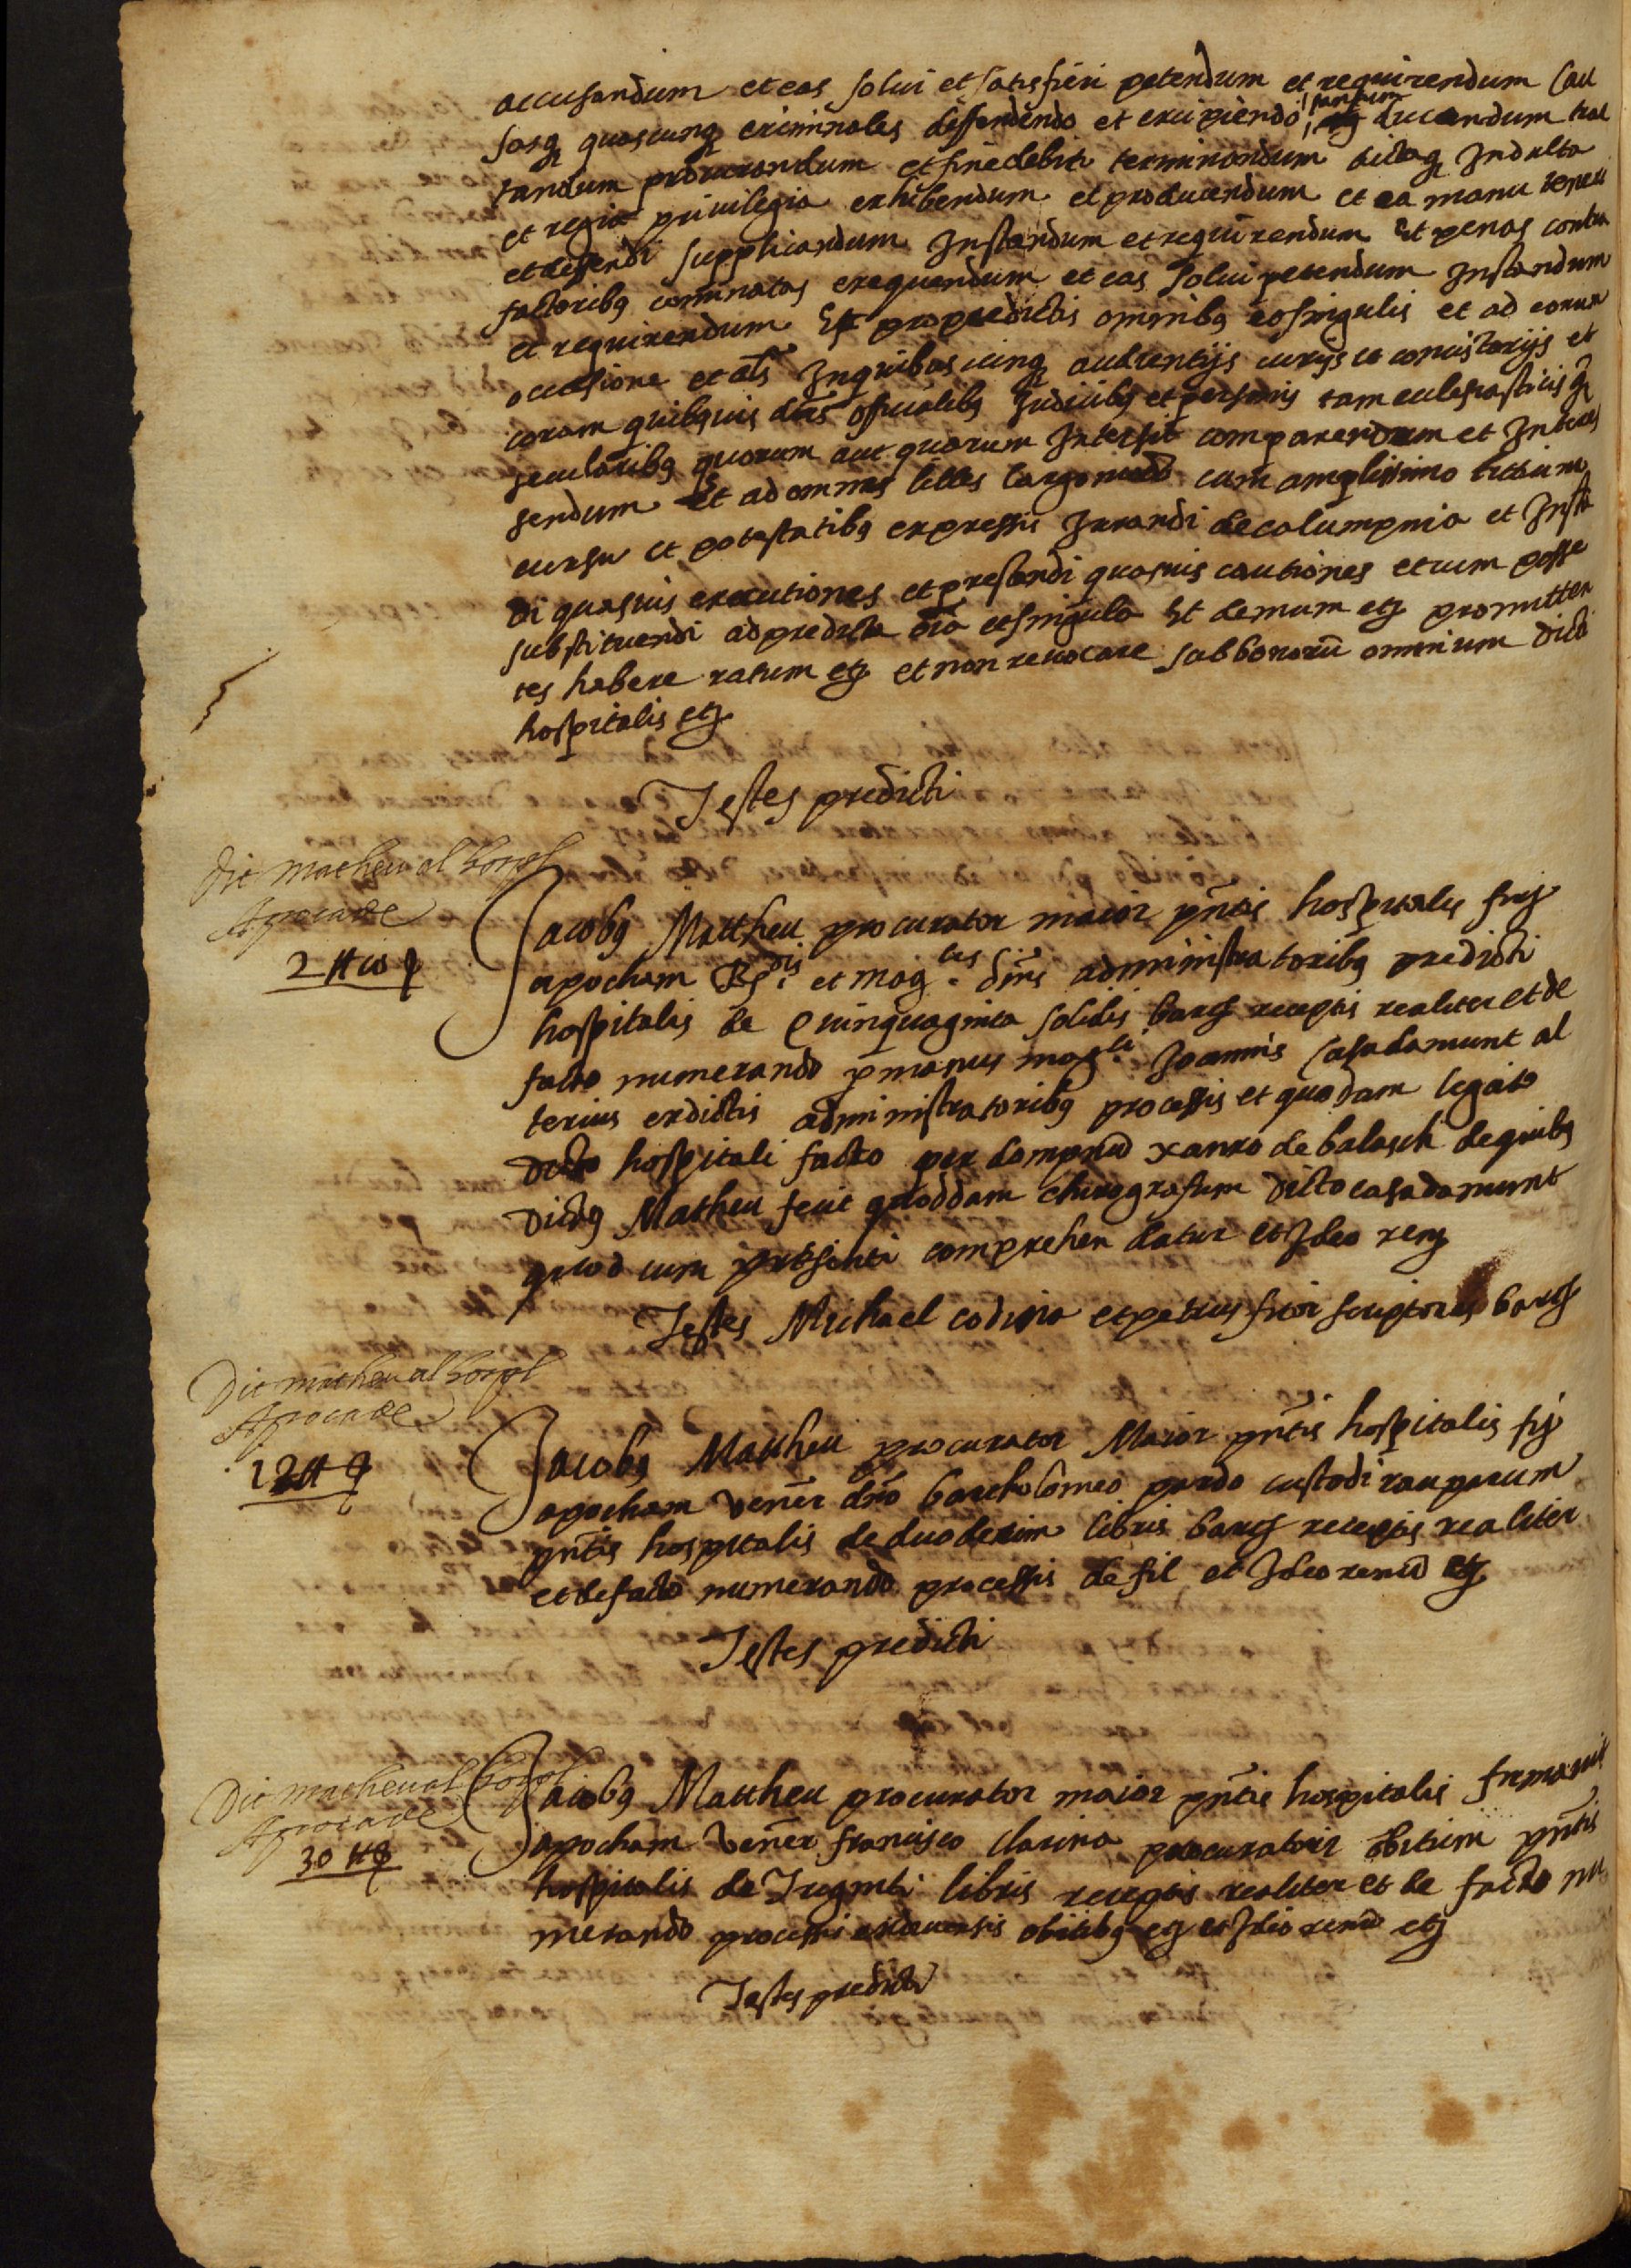 accusandum et eas solui et satisfieri petendum et requirendum Cau
sasq quascunq criminales deffendendo et excipiendo tantum ducendum trac
tandum procurandum et finedebita terminandum dictaq Indulta
et regia priuilegia exhibendum et producendum et ea manu teneri
et deffendi supplicandum Instandum et requirendum Et penas contra
factoribq cominatas exequendum et eas solui petendum Instandum
et requirendum Et pro predictis omnibq et singulis et ad eorum
occasione et als In quibuscunq audientijs curijs et concistorijs et
coram quibusuis dnis officialibq Judicibq et personis tam eclesiasticis q
secularibq quorum aut quarum Intersit comparendum et Interes
sendum Et ad omnes lites largo modo cum amplissimo litium
cursu et potestatibq expressis Jurandi de calumpnia et Insta
di quasuis executiones et prestandi quasuis cautiones et cum posse
substituendi ad predicta oia et singula Et demum etz promitten
tes habere ratum etz et non reuocare sub bonorū omnium dicti
hospitalis etz
Testes predicti
Die matheu al hospl
Apoca de
2 ℔ 10 ꝭ
Jacobq Mattheu procurator maior pntis hospitalis firj
apocham Rdis et mag.cis dnis administratoribq predicti
hospitalis de quinquaginta solidis barç receptis realiter et de
facto numerando p manus mag.ci Joannis Casadamunt al
terius ex dictis administratoribq processis et quodam legato
dicto hospitali facto per dompnū xanxo de balasch de quibq
dictq Matheu fecit quoddam chirografum dicto casadamunt
quod cum presenti comprehendatur et Ideo renz
Testes Michael codina et petrus fitor scriptores barç
Die matheu al hospl
Apoca de
12 ℔ ꝭ
Jacobq Mattheu procurator Maior pntis hospitalis fij
apocham Vener dno bartholomeo pardo custodi rauparum
pntis hospitalis de duodecim libris barç receptis realiter
et de facto numerando processis de fil et Ideo renū etz
Testes predicti
Die matheu al hospl
Apoca de
30 ℔ ꝭ
Jacobq Mattheu procurator maior pntis hospitalis firmauit
apocham Vener francisco clarina procuratori obitum pntis
hospitalis de Triginti libris receptis realiter et de facto nu
merando processi ex diuersis obitibq etz et Ideo renū etz
Testes predicti